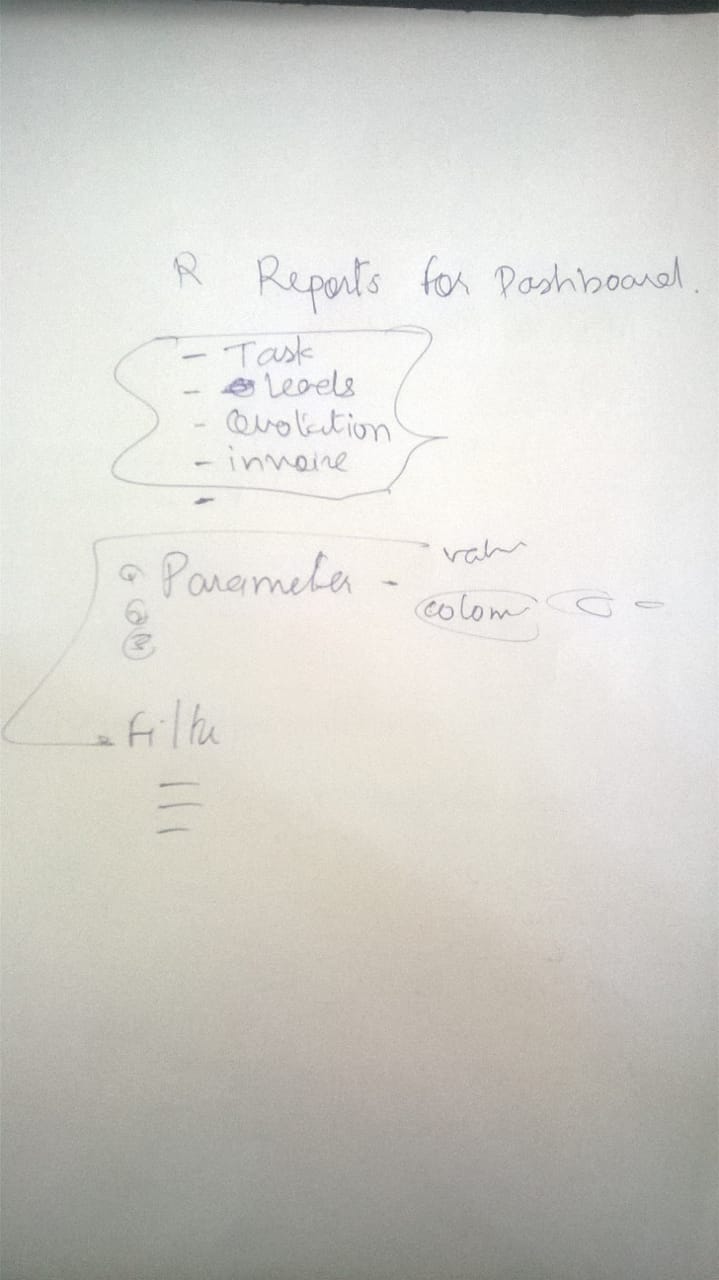 R Reports for Dashboard.
- Task
- Leads
- Quotation
- invoice
-
① Parameter -
②
③
colom
- Filter